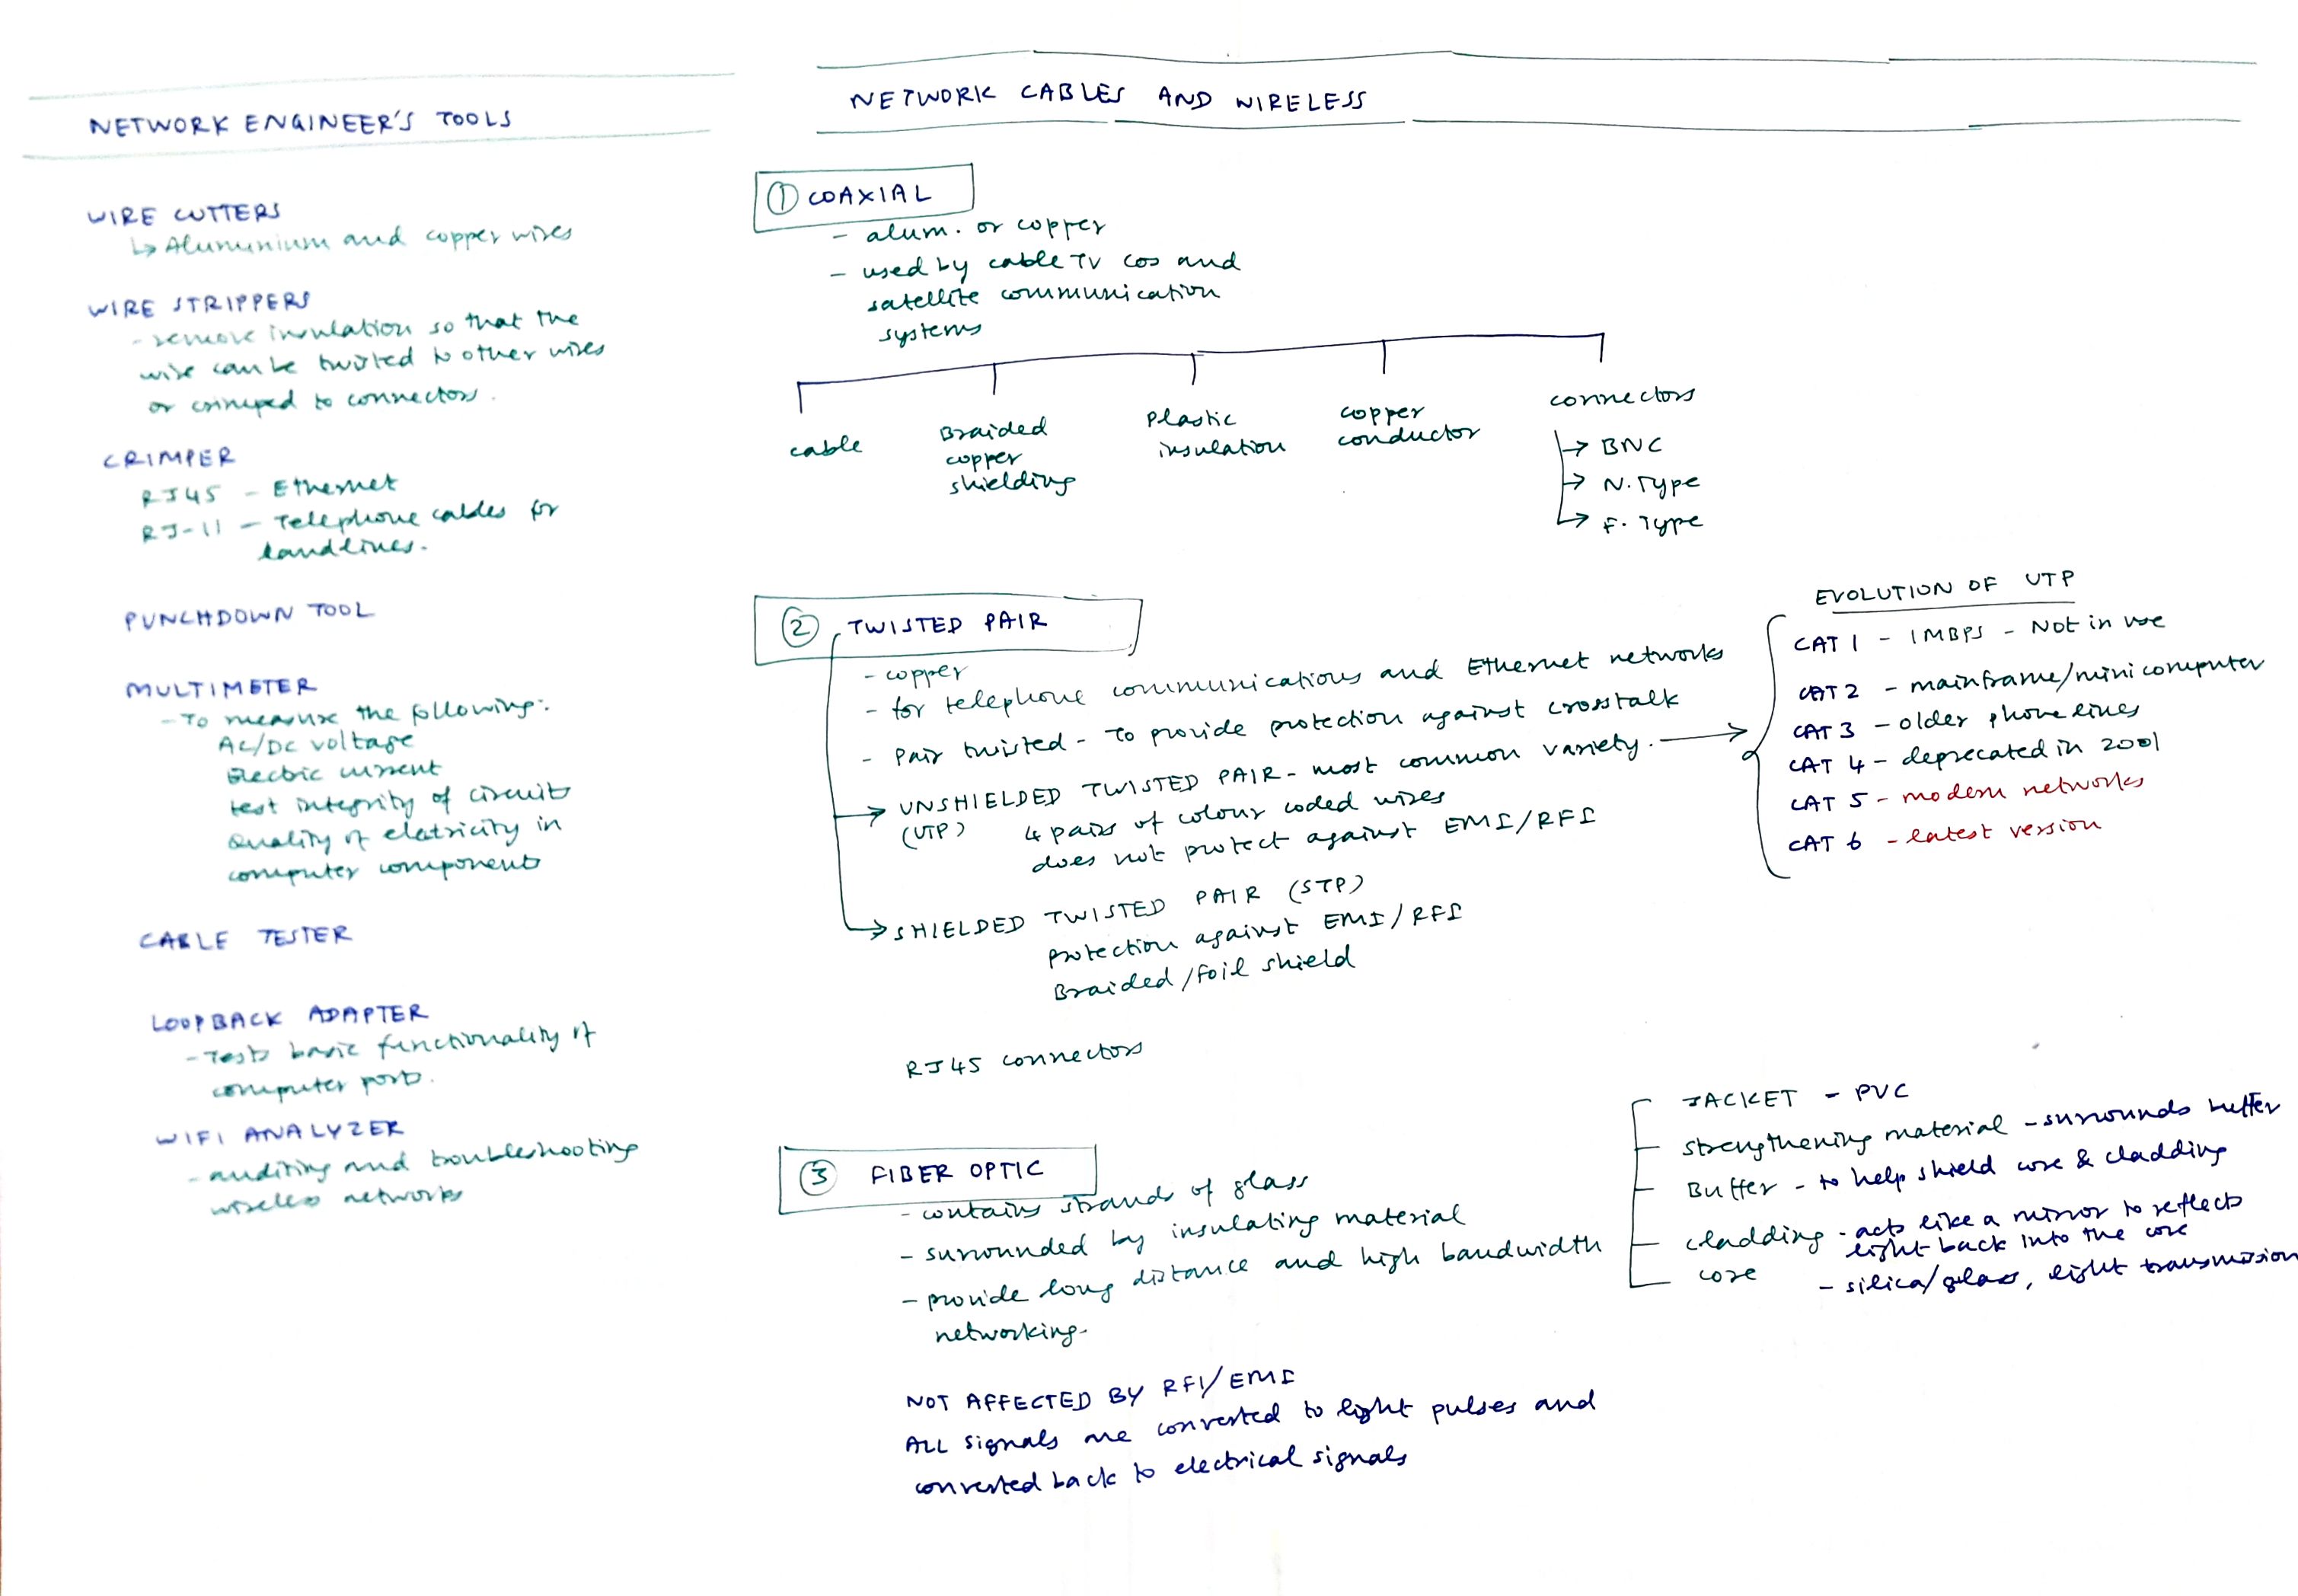 NETWORK ENGINEER'S TOOLS
WIRE CUTTERS
↳ Alumunium and copper wires
WIRE STRIPPERS
- remove insulation so that the
wire can be twisted to other wires
or crimped to connectors.
CRIMPER
RJ45 - Ethernet
RJ-11 - Telephone cables for
landlines.
PUNCHDOWN TOOL
MULTIMETER
- To measure the following:
AC/DC voltage
Electric current
test integrity of circuits
Quality of eletricity in
computer components
CABLE TESTER
LOOPBACK ADAPTER
- Tests basic functionality of
computer ports.
WIFI ANALYZER
- auditing and troubleshooting
wireless networks
NETWORK CABLES AND WIRELESS
① COAXIAL
- alum. or copper
- used by cable TV cos and
satellite communication
systems
cable
Braided
copper
shielding
Plastic
insulation
copper
conductor
connectors
→ BNC
→ N. Type
→ F. Type
② TWISTED PAIR
- copper
- for telephone communications and Ethernet networks
- Pair twisted - To provide protection against crosstalk
→ UNSHIELDED TWISTED PAIR - most common variety. →
(UTP) 4 pairs of colour coded wires
does not protect against EMI/RFI
→ SHIELDED TWISTED PAIR (STP)
protection against EMI/RFI
Braided/foil shield
RJ45 connectors
EVOLUTION OF UTP
CAT 1 - 1MBPS - Not in use
CAT 2 - mainframe/minicomputer
CAT 3 - older phone lines
CAT 4 - deprecated in 2001
CAT 5 - modern networks
CAT 6 - latest version
③ FIBER OPTIC
- contains strands of glass
- surrounded by insulating material
- provide long distance and high bandwidth
networking.
NOT AFFECTED BY RFI/EMI
ALL signals are converted to light pulses and
converted back to electrical signals
JACKET - PVC
Strengthening material - surrounds buffer
Buffer - to help shield core & cladding
cladding - acts like a mirror to reflects
light back into the core
core - silica/glass, light transmission